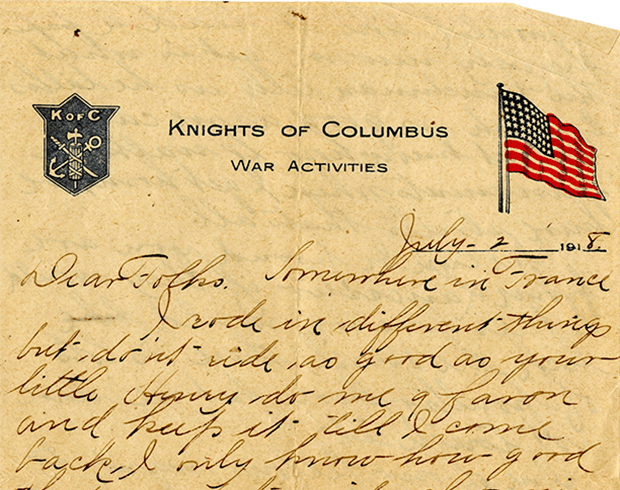 K of C
KNIGHTS OF COLUMBUS
WAR ACTIVITIES
July - 2 1918.
Dear Folks. Somewhere in France
I rode in different things
but, do'nt ride, as good as your
little Henry do me a favor
and keep it till I come
back, I only know how good